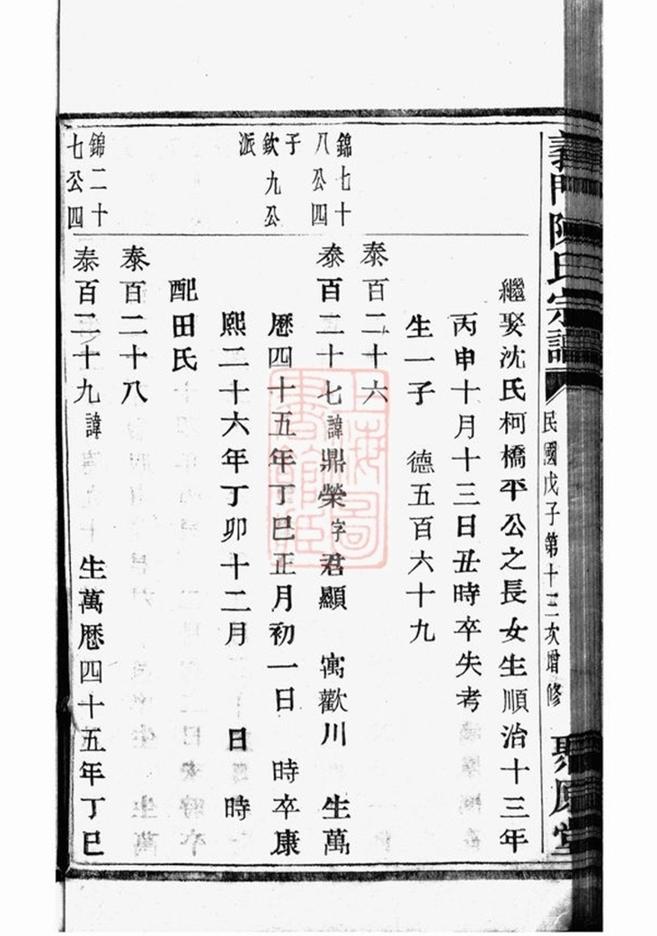 義門陳氏宗譜
民國戊子第十三次增修
聚原堂
繼娶沈氏柯橋平公之長女生順治十三年
丙申十月十三日丑時卒失考
生一子 德五百六十九
泰百二十六
錦七十
八公四
子
欽九公
派
泰百二十七諱鼎榮字君顯 寓歡川 生萬
曆四十五年丁巳正月初一日 時卒康
熙二十六年丁卯十二月 日 時
配田氏
泰百二十八
錦二十
七公四
泰百二十九諱 生萬曆四十五年丁巳
上海圖
書館藏